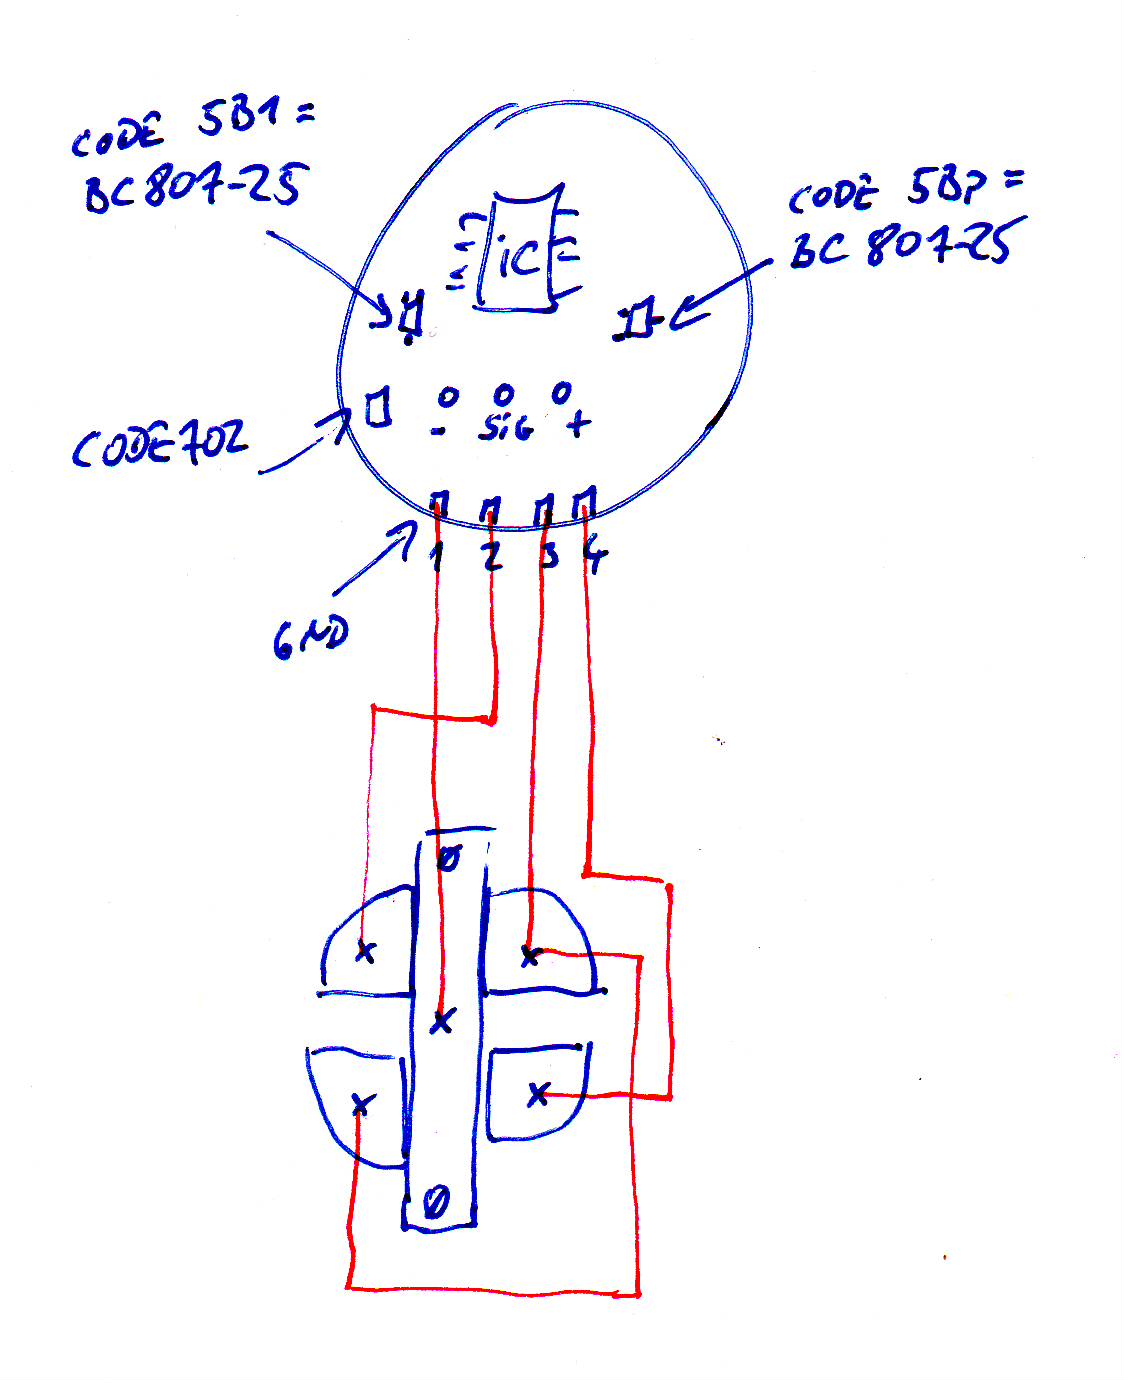 CODE 5B1 =
BC807-25
CODE 5BP =
BC 807-25
iC
CODE 702
- SiG +
1 2 3 4
GND